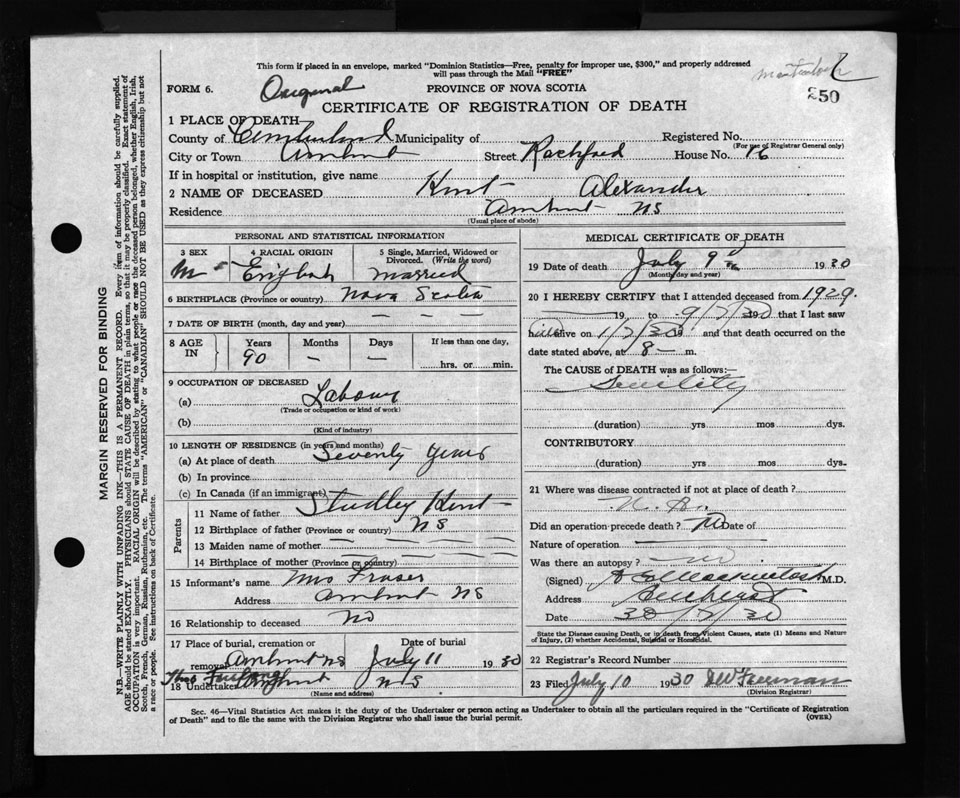 This form if placed in an envelope, marked "Dominion Statistics—Free, penalty for improper use, $300," and properly addressed
will pass through the Mail "FREE"
FORM 6. Original PROVINCE OF NOVA SCOTIA
250
CERTIFICATE OF REGISTRATION OF DEATH
1 PLACE OF DEATH—
County of Cumberland Municipality of Registered No.
(For use of Registrar General only)
City or Town Amherst Street Rockford House No. 16
If in hospital or institution, give name
2 NAME OF DECEASED Kent Alexander
Residence Amherst NS
(Usual place of abode)
PERSONAL AND STATISTICAL INFORMATION
3 SEX 4 RACIAL ORIGIN 5 Single, Married, Widowed or
Divorced. (Write the word)
M English Married
6 BIRTHPLACE (Province or country) Nova Scotia
7 DATE OF BIRTH (month, day and year) — — —
8 AGE IN Years Months Days If less than one day,
90 — — hrs. or min.
9 OCCUPATION OF DECEASED
(a) Labour
(Trade or occupation or kind of work)
(b)
(Kind of industry)
10 LENGTH OF RESIDENCE (in years and months)
(a) At place of death Seventy years
(b) In province
(c) In Canada (if an immigrant)
Parents
11 Name of father Studley Kent
12 Birthplace of father (Province or country) NS
13 Maiden name of mother — — — —
14 Birthplace of mother (Province or country) — — —
15 Informant's name Mrs Fraser
Address Amherst NS
16 Relationship to deceased No
17 Place of burial, cremation or Date of burial
removal Amherst NS July 11 1930
18 Undertaker Amherst NS
(Name and address)
MEDICAL CERTIFICATE OF DEATH
19 Date of death July 9th 1930
(Month, day and year)
20 I HEREBY CERTIFY that I attended deceased from 1929
19 , to 9/7/30 that I last saw
him alive on 1/7/30 and that death occurred on
date stated above, at 8 — m.
The CAUSE of DEATH was as follows:—
Senility
(duration) yrs mos dys.
CONTRIBUTORY
(duration) yrs mos dys.
21 Where was disease contracted if not at place of death?
Did an operation precede death? No Date of
Nature of operation
Was there an autopsy? no
(Signed) Mackintosh M.D.
Address Amherst
Date 30/7/30
State the Disease causing Death, or in death from Violent Causes, state (1) Means and
Nature of Injury, (2) whether Accidental, Suicidal or Homicidal.
22 Registrar's Record Number
23 Filed July 10 1930 Freeman
(Division Registrar)
Sec. 46—Vital Statistics Act makes it the duty of the Undertaker or person acting as Undertaker to obtain all the particulars required in the "Certificate of Registration
of Death" and to file the same with the Division Registrar who shall issue the burial permit. (OVER)
MARGIN RESERVED FOR BINDING
N.B.—WRITE PLAINLY WITH UNFADING INK—THIS IS A PERMANENT RECORD. Every item of information should be carefully supplied.
AGE should be stated EXACTLY. PHYSICIANS should STATE CAUSE OF DEATH in plain terms, so that it may be properly classified. Exact statement of
OCCUPATION is very important. RACIAL ORIGIN will be described by stating to what people or race the deceased person belonged, whether English, Irish,
Scotch, French, German, Russian, Ruthenian, etc. The terms "AMERICAN" or "CANADIAN" SHOULD NOT BE USED as they express citizenship but not
a race or people. See instructions on back of Certificate.